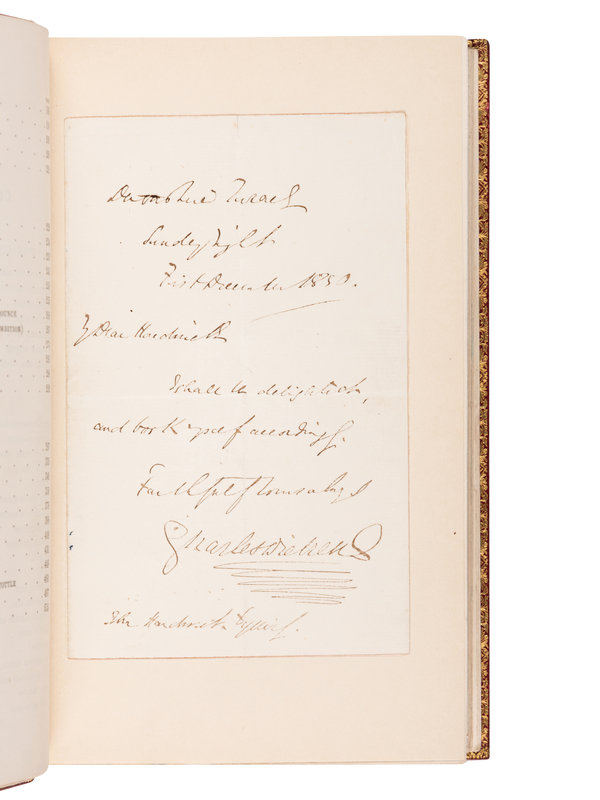 OUNCE
OMBITION)
OTTLE
Devonshire Terrace
Sunday Night
First December 1850.
My Dear Hardwick
I shall be delighted,
and book myself accordingly.
Faithfully Yours always
Charles Dickens
John Hardwick Esquire.